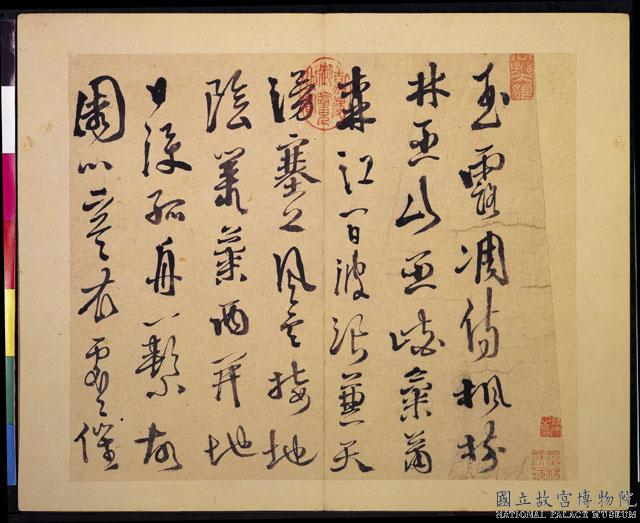 玉露凋傷楓樹
林巫山巫峽氣蕭
森江間波浪兼天
湧塞上風雲接地
陰叢菊兩開他
日淚孤舟一繫故
園心寒衣處〻催
國立故宮博物院
NATIONAL PALACE MUSEUM